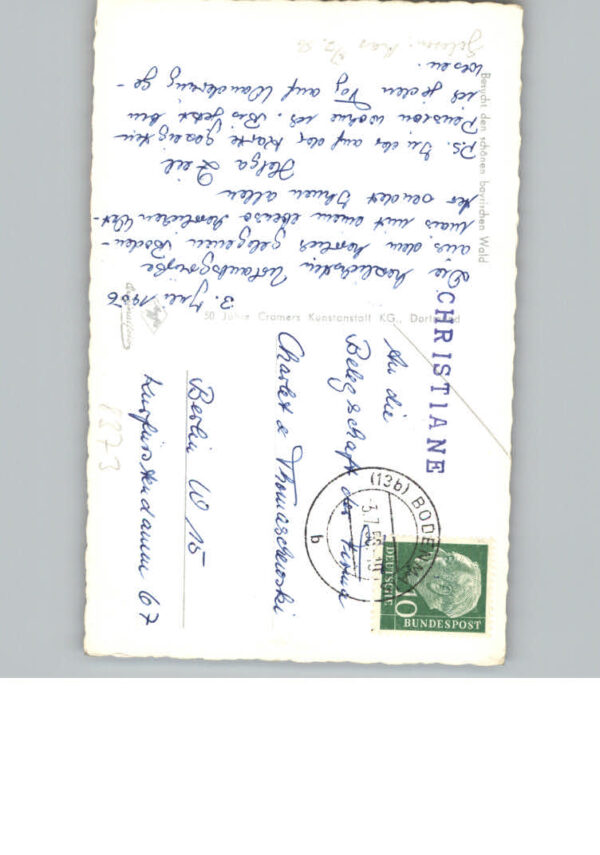 Besucht den schönen bayrischen Wald
3. Juli 1956
Die herzlichsten Urlaubsgrüße
aus dem herrlich gelegenen Boden-
mais mit einem ebenso herrlichen Wet-
ter sendet Ihnen allen
Helga Zeil
P.S. In der auf der Karte gezeigten
Pension wohne ich. Bis jetzt bin
ich jeden Tag auf Wanderung ge-
wesen.
50 Jahre Cramers Kunstanstalt KG., Dortmund
CHRISTIANE
An die
Belegschaft der Firma
Charlet & Thomaschewski
Berlin W 15
Kurfürstendamm 67
1373
(13b) BODENMAIS
3.7.56
b
DEUTSCHE
BUNDESPOST
10